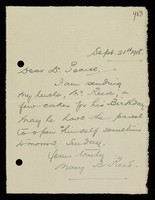 413
Sept. 21st 1918.
Dear Dr. Pearse,
I am sending
my uncle, Mr. Reid, a
few cakes for his Birthday
may he have the parcel
to open himself sometime
tomorrow, Sunday.
Yours truly
Mary Reid.